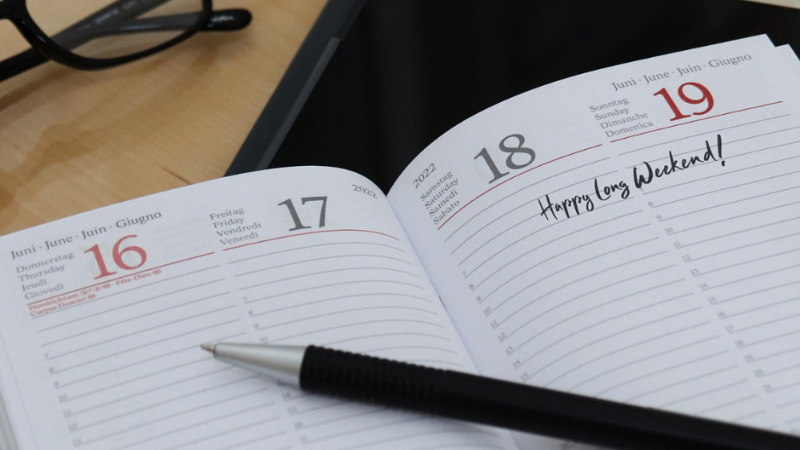 Juni · June · Juin · Giugno
Donnerstag
Thursday
Jeudi
Giovedì
16
Fronleichnam
Fête-Dieu
Corpus Domini
2022
Freitag
Friday
Vendredi
Venerdì
17
2022
Samstag
Saturday
Samedi
Sabato
18
Juni · June · Juin · Giugno
Sonntag
Sunday
Dimanche
Domenica
19
Happy Long Weekend!